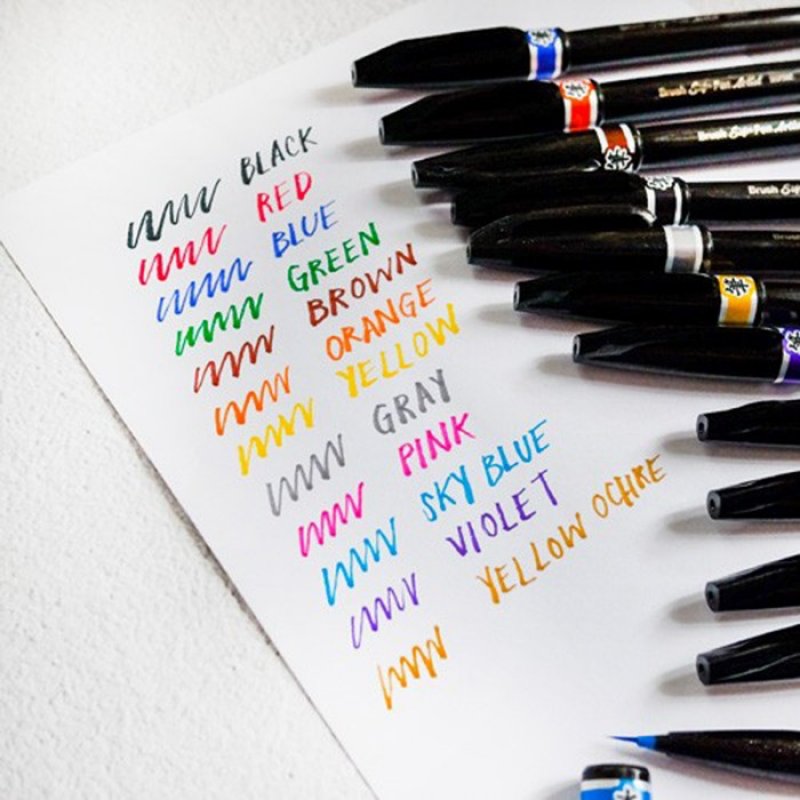 BLACK
RED
BLUE
GREEN
BROWN
ORANGE
YELLOW
GRAY
PINK
SKY BLUE
VIOLET
YELLOW OCHRE
Brush Sign Pen Artist
Brush Sign Pen Artist
Brush Sign